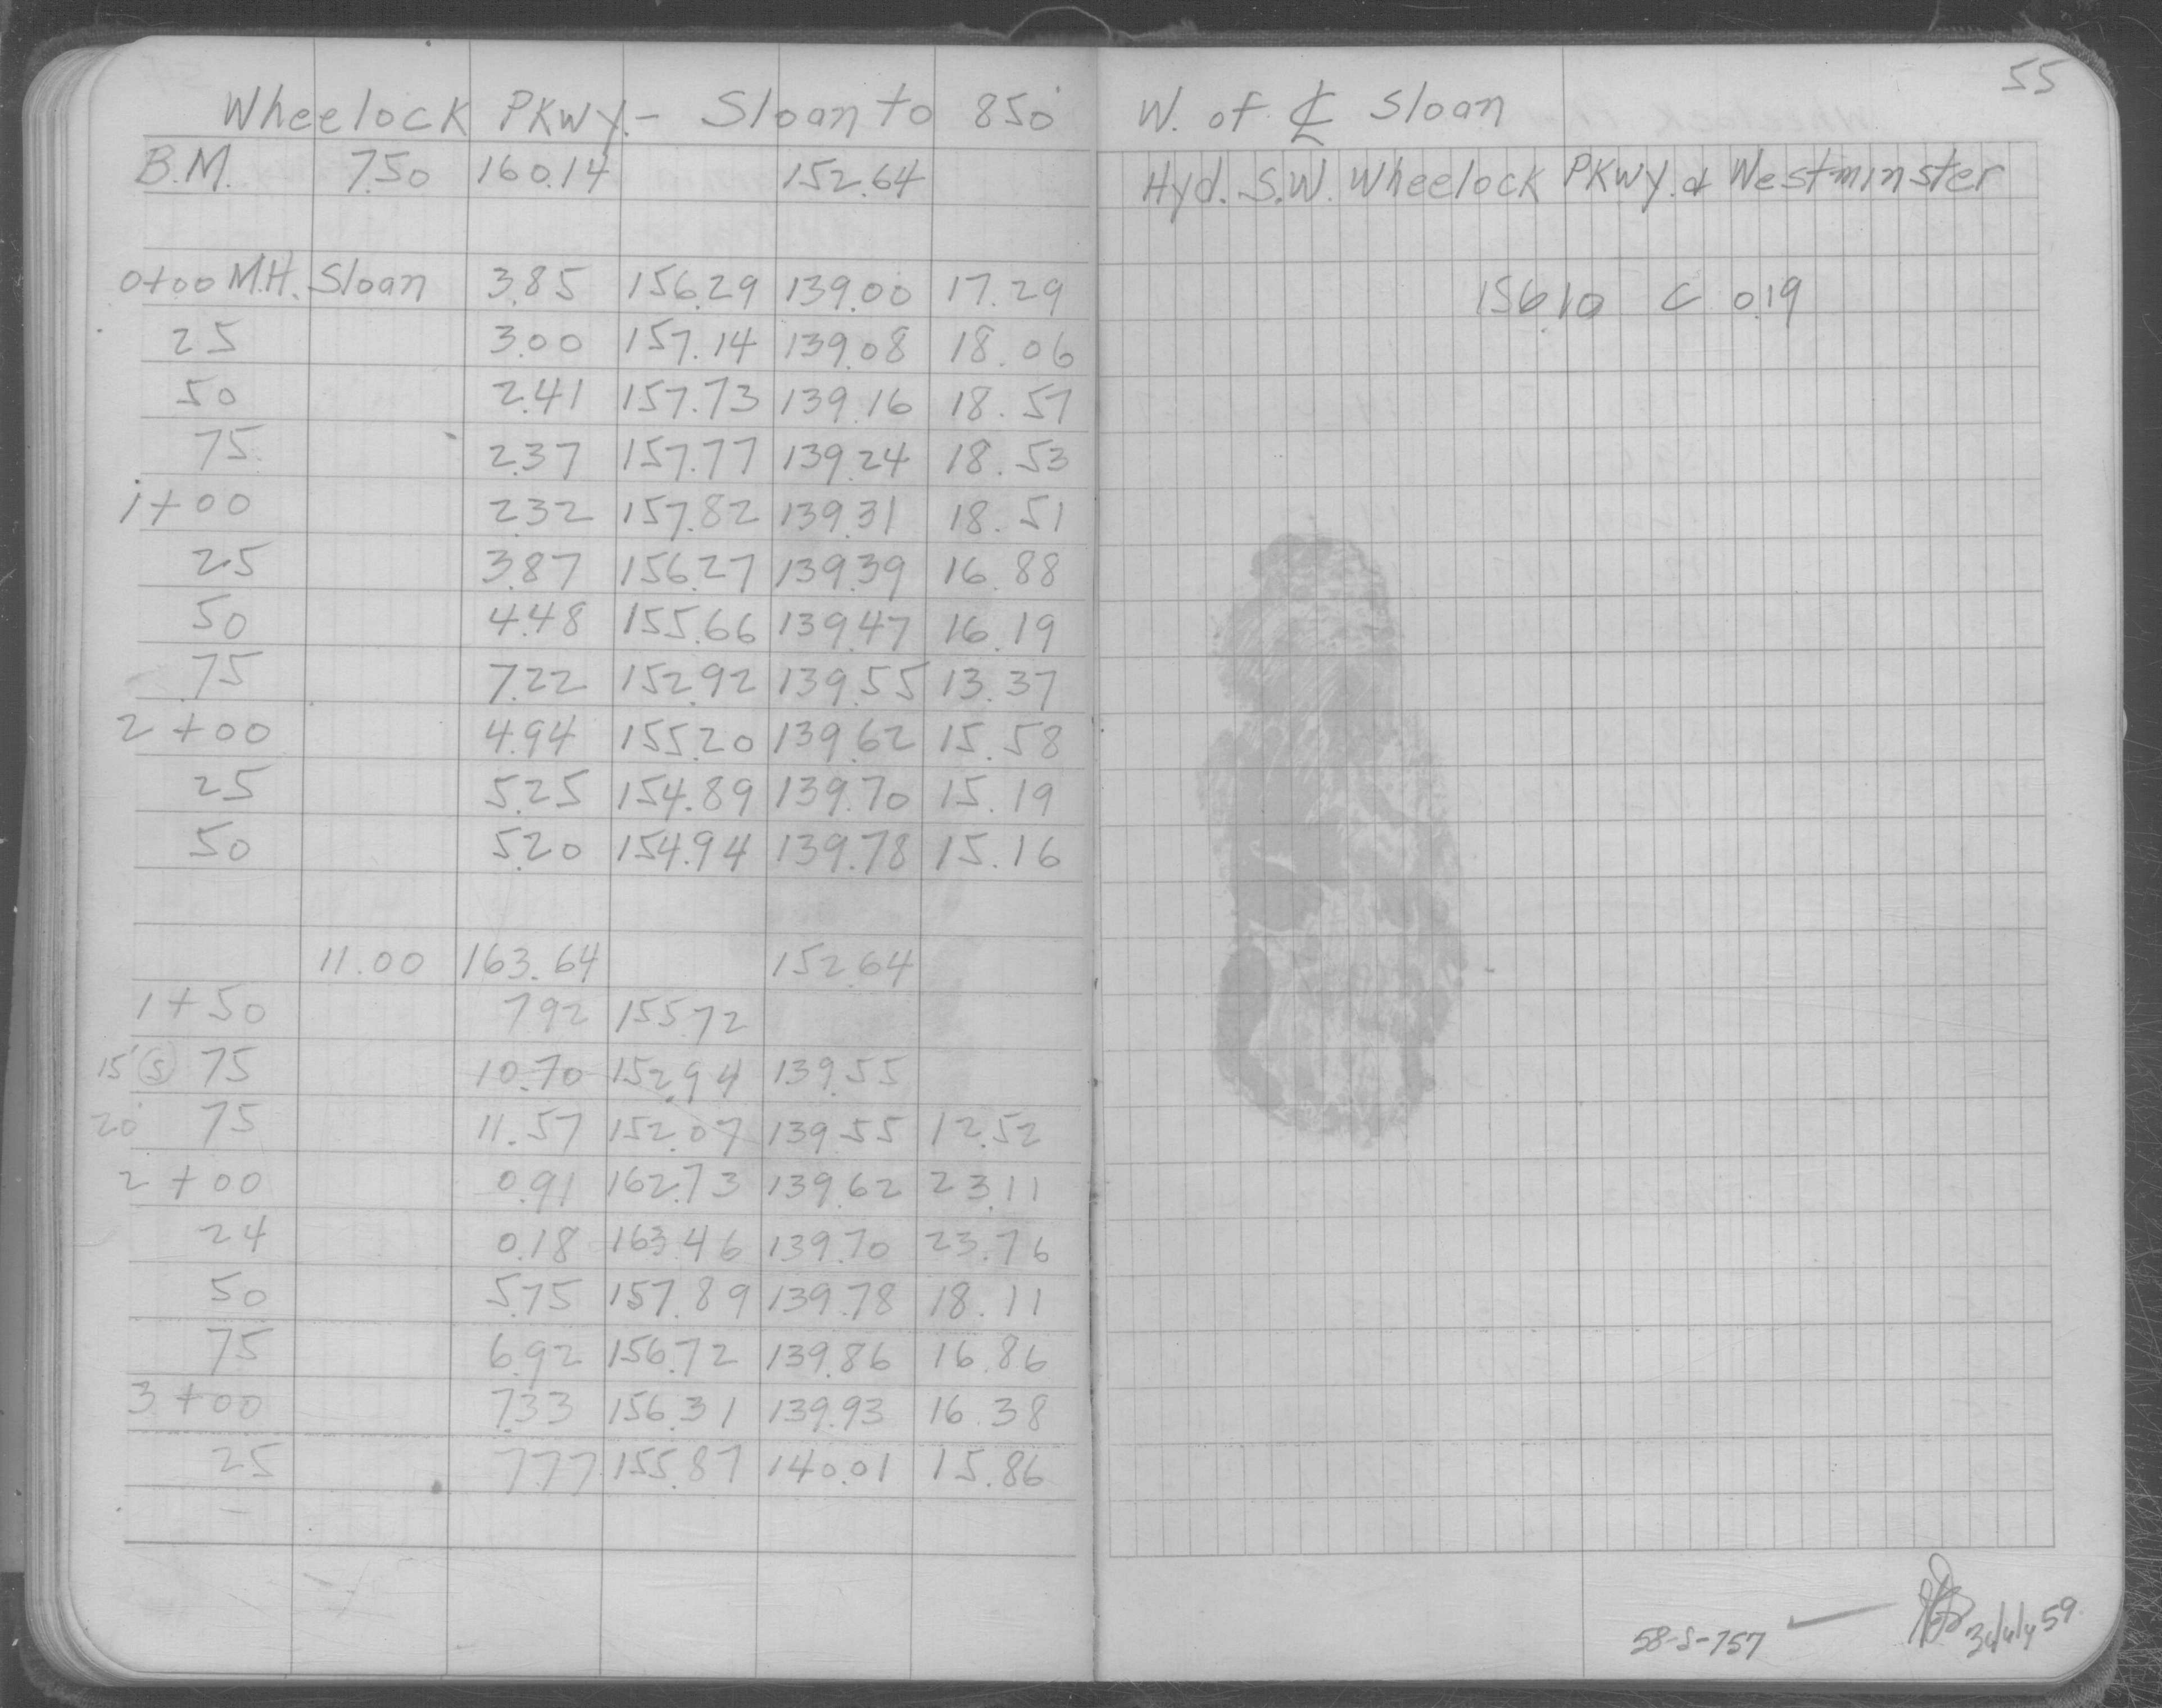 55
Wheelock PKwy. - Sloan to 850' W. of ℄ Sloan
B.M. 7.50 160.14 152.64 Hyd. S.W. Wheelock PKwy. & Westminster
0+00 M.H. Sloan 3.85 156.29 139.00 17.29 156.10 C 0.19
25 3.00 157.14 139.08 18.06
50 2.41 157.73 139.16 18.57
75 2.37 157.77 139.24 18.53
1+00 2.32 157.82 139.31 18.51
25 3.87 156.27 139.39 16.88
50 4.48 155.66 139.47 16.19
75 7.22 152.92 139.55 13.37
2+00 4.94 155.20 139.62 15.58
25 5.25 154.89 139.70 15.19
50 5.20 154.94 139.78 15.16
11.00 163.64 152.64
1+50 7.92 155.72
15' (S) 75 10.70 152.94 139.55
20' 75 11.57 152.07 139.55 12.52
2+00 0.91 162.73 139.62 23.11
24 0.18 163.46 139.70 23.76
50 5.75 157.89 139.78 18.11
75 6.92 156.72 139.86 16.86
3+00 7.33 156.31 139.93 16.38
25 7.77 155.87 140.01 15.86
58-S-757 59